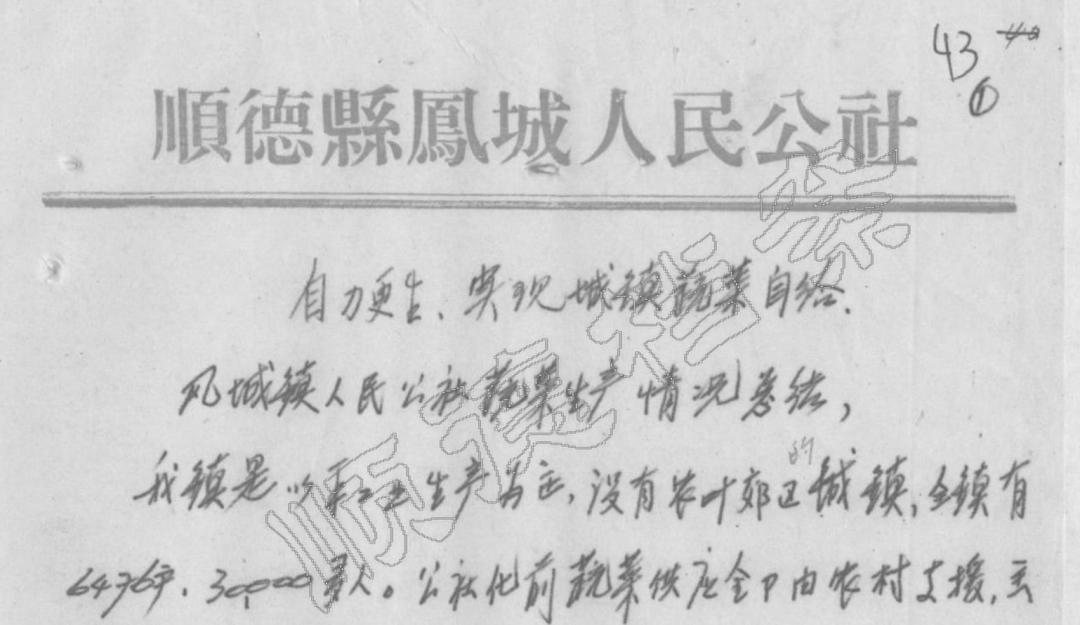 43 40
①
順德縣鳳城人民公社
自力更生、实现城镇蔬菜自给.
凤城镇人民公社蔬菜生产情况总结,
我镇是以手工业生产为主,没有农叶郊区的城镇,全镇有
6476户.30,000多人。公社化前蔬菜供应全卩由农村支援,
顺德档案